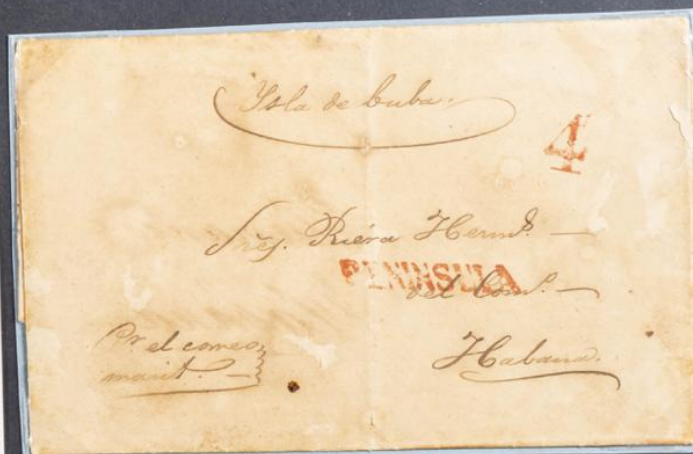 Ysla de Cuba.
4
Sres. Riera Herms. —
PENINSULA
del Como. —
Pr. el correo
marit. —
Habana.